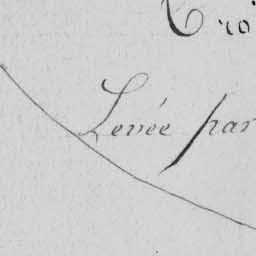 Croi
Levée par